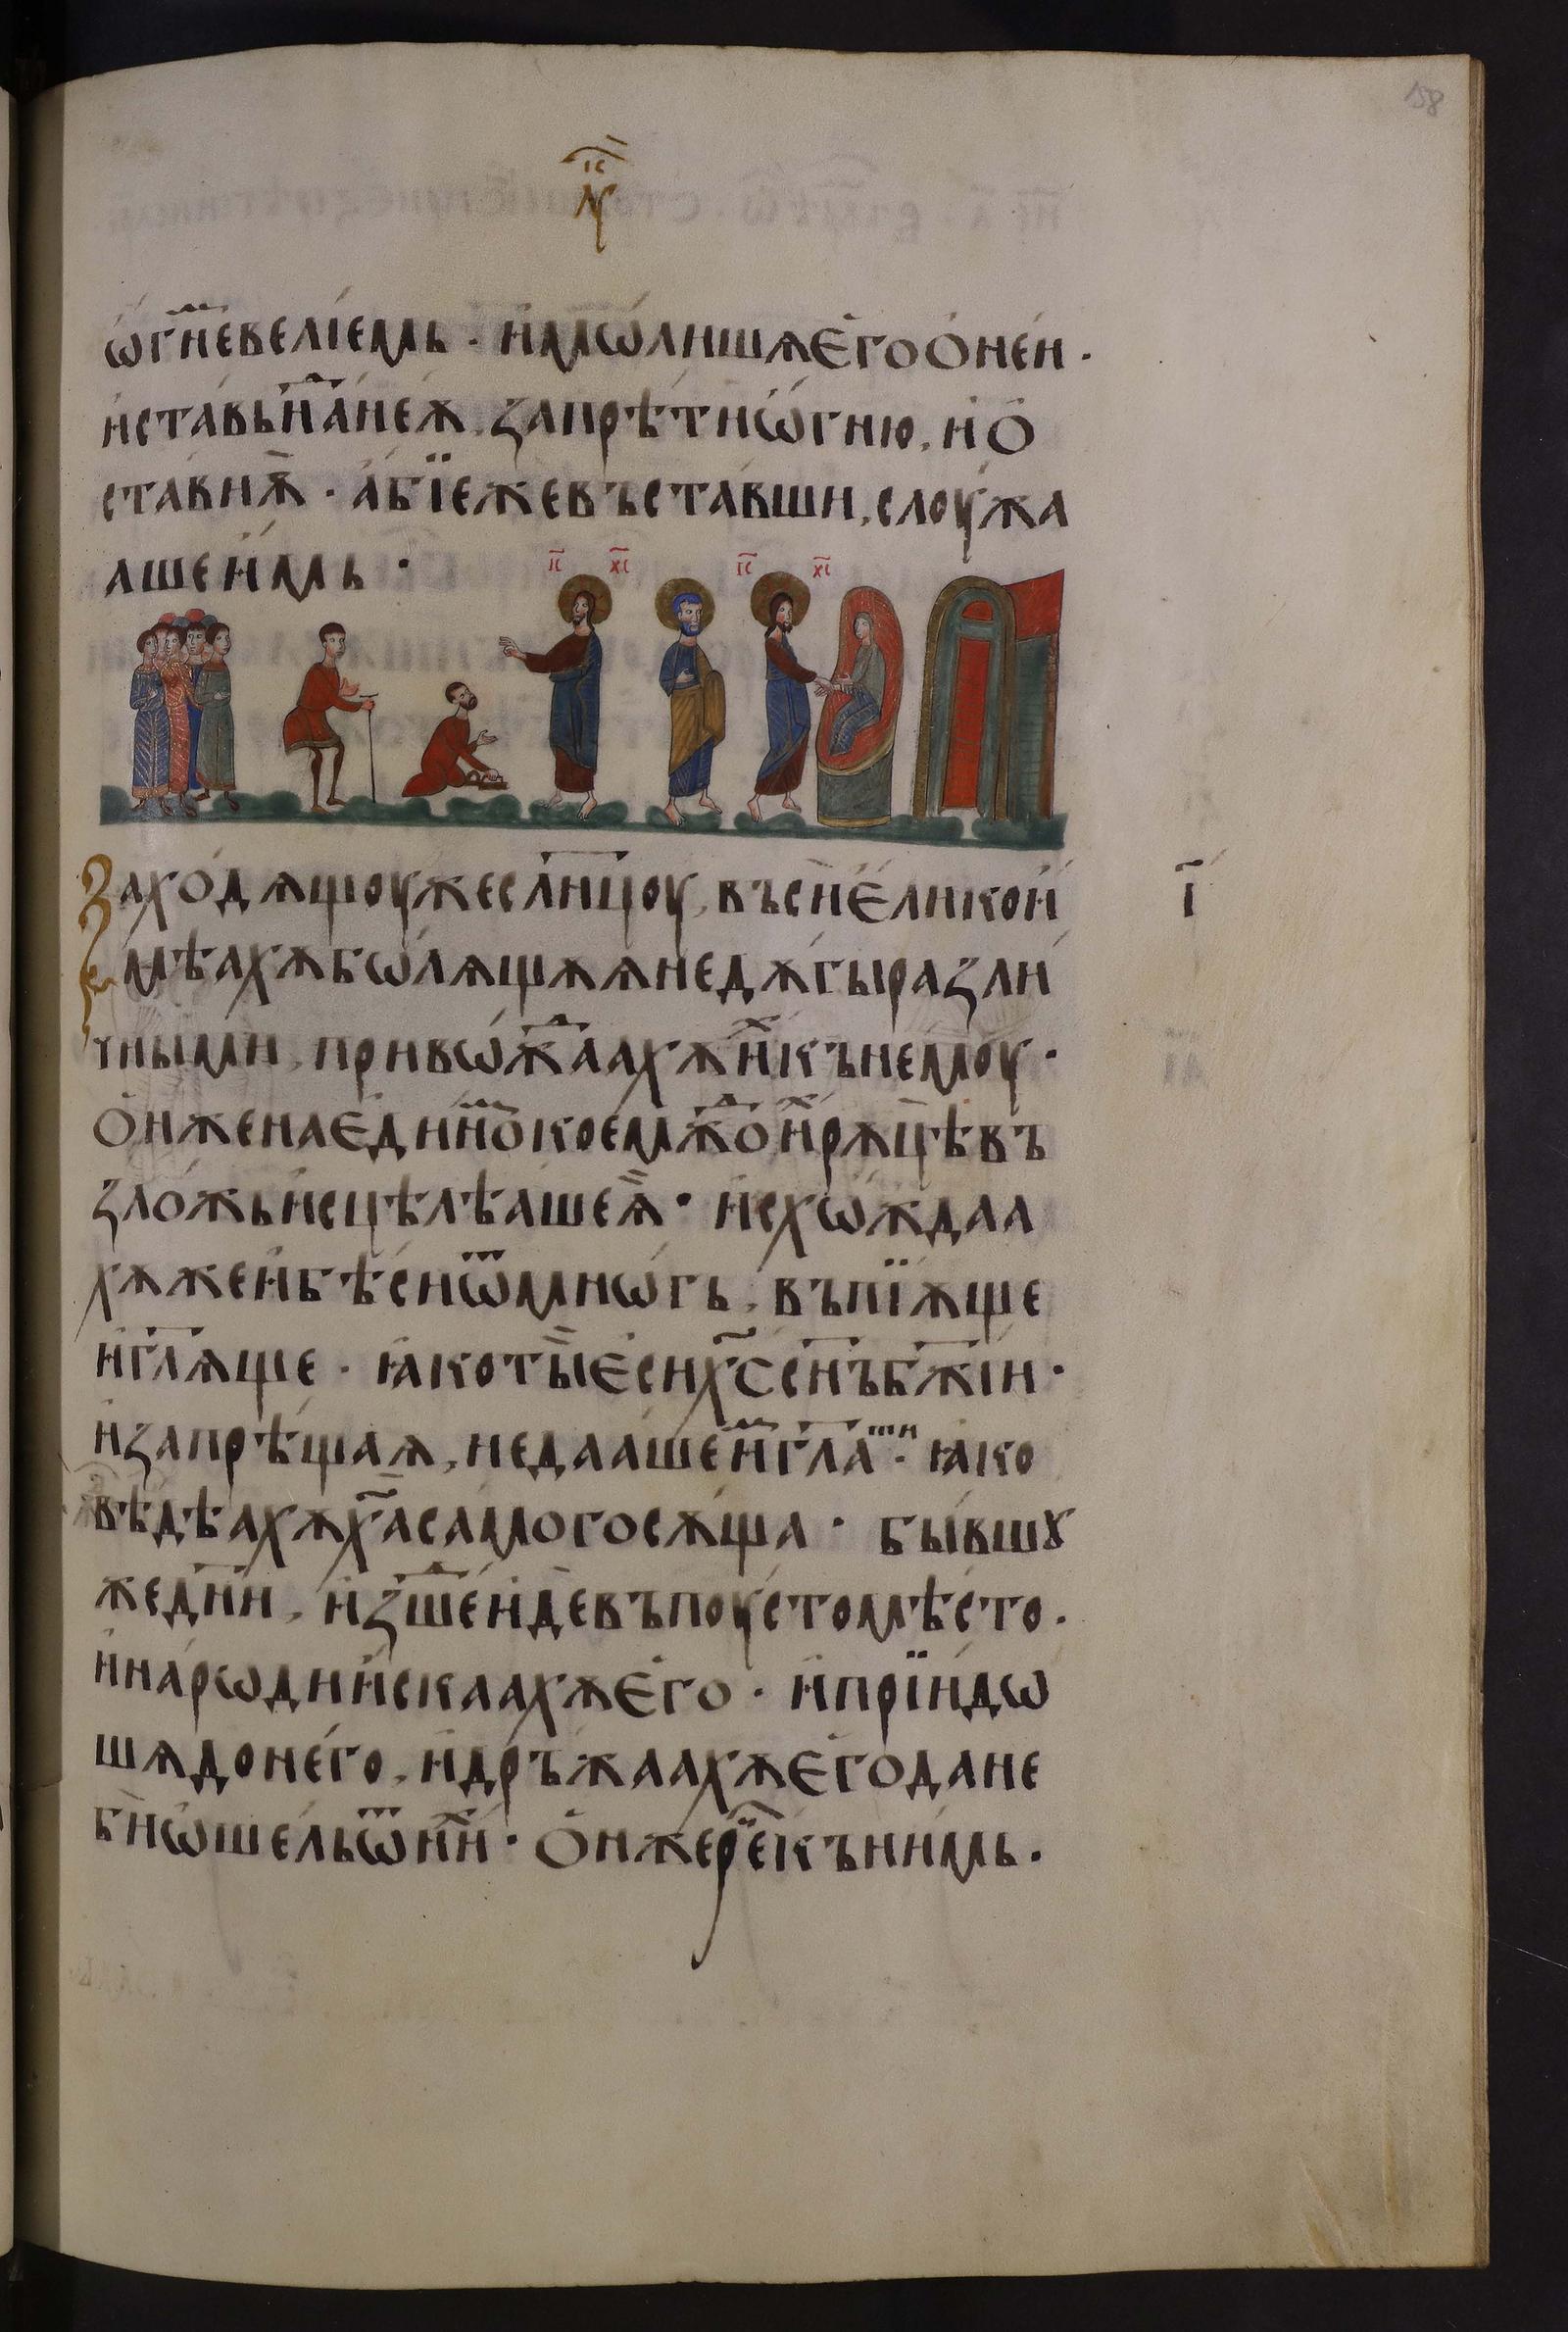 158
і҃с
ѱ
ѡ҆гн҄евеліемь · и҆мѡ́лишѫе҆гоо҆не́и ·
и҆ста́вьна́неѫ , запрѣ́тиѡ҆гню , и҆о҆
ста́виѫ̀ · а҆бїежевъста́вши , слоу́жа
ашеи҆мь ·
і҃с х҃с і҃с х҃с
Захо́дѧщоужесл҃нцоу , въсѝе҆ликои҆
мѣахѫбѡлѧщѫѧнедѫ́гыразли́
чными , привѡж҃аахѫи҆хкънемоу ·
о҆нженае҆ди́ноко́емж҃ои҆хрѫцѣвъ
зло́жьи҆сцѣлѣашеѧ҄ · и҆схѡжда́а
хѫжеи҆бѣ́сиѿмнѡ́гь , въпїѫще
и҆гл҃ѧще · ꙗ҆коты̀е҆сих҃ссн҃ъбж҃іи ·
и҆запрѣ́щаѧ , недаа́шеи҆мгл҃ати · ꙗ҆ко
вѣ́дѣахѫх҃аса́могосѫ́ща · бы́вшꙋ
жедн҃и , и҆зше́и҆девъпоу́стомѣ́сто ·
и҆на́рѡдии҆скаахѫе҆го · и҆прїи́дѡ
шѧдоне́го , и҆дръжаахѫе҆го̀дане
бѝѡ҆ше́льѿни́х · о҆нжере҄къни́мь ·
і҃